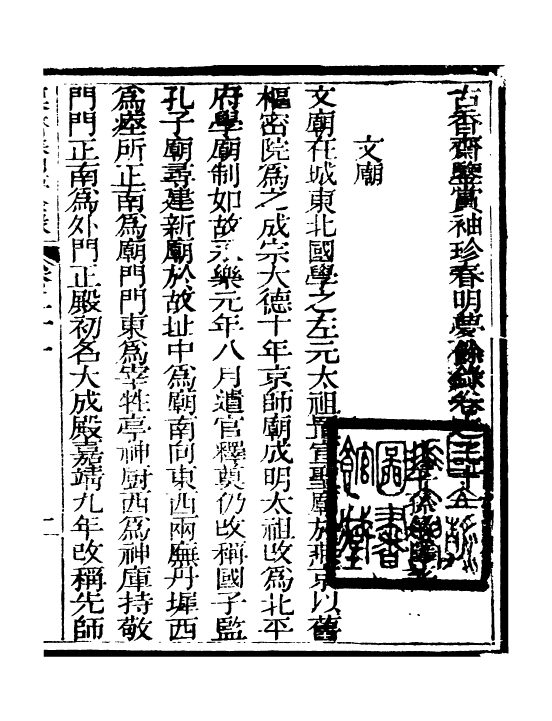 古香齋鑒賞袖珍春明夢餘錄卷之二十一
文廟
文廟在城東北國學之左元太祖置宣聖廟於燕京以舊
樞密院為之成宗大德十年京師廟成明太祖改為北平
府學廟制如故永樂元年八月遣官釋奠仍改稱國子監
孔子廟尋建新廟於故址中為廟南向東西兩廡丹墀西
為瘞所正南為廟門門東為宰牲亭神廚西為神庫持敬
門門正南為外門正殿初名大成殿嘉靖九年改稱先師